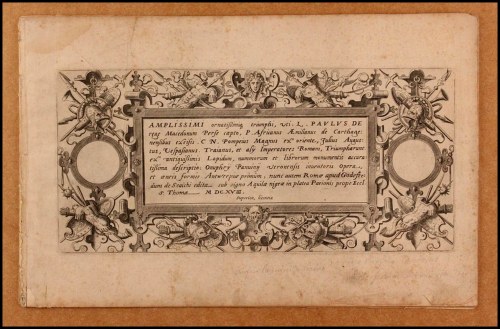 AMPLISSIMI ornatissimiq triumphi, uti L. PAVLVS DE
rege Macedonum Perse capto, P. Africanus Æmilianus de Carthagi-
nensibus excisis, CN. Pompeius Magnus ex oriente, Julius Augus-
tus, Vespasianus, Traianus, et alij Imperatores Romani, Triumpharunt
ex antiquissimis Lapidum, nummorum et librorum monumentis accura-
tissima descriptio Onuphry Panuiny veronensis inuentoris Opera,
et æneis formis Antwerpiæ primum, nunc autem Romæ apud
de Scaichi edita sub signo Aquilæ nigræ in platea Parionis prope Eccl
S. Thomæ M DC XVIII
Superiorum licentia